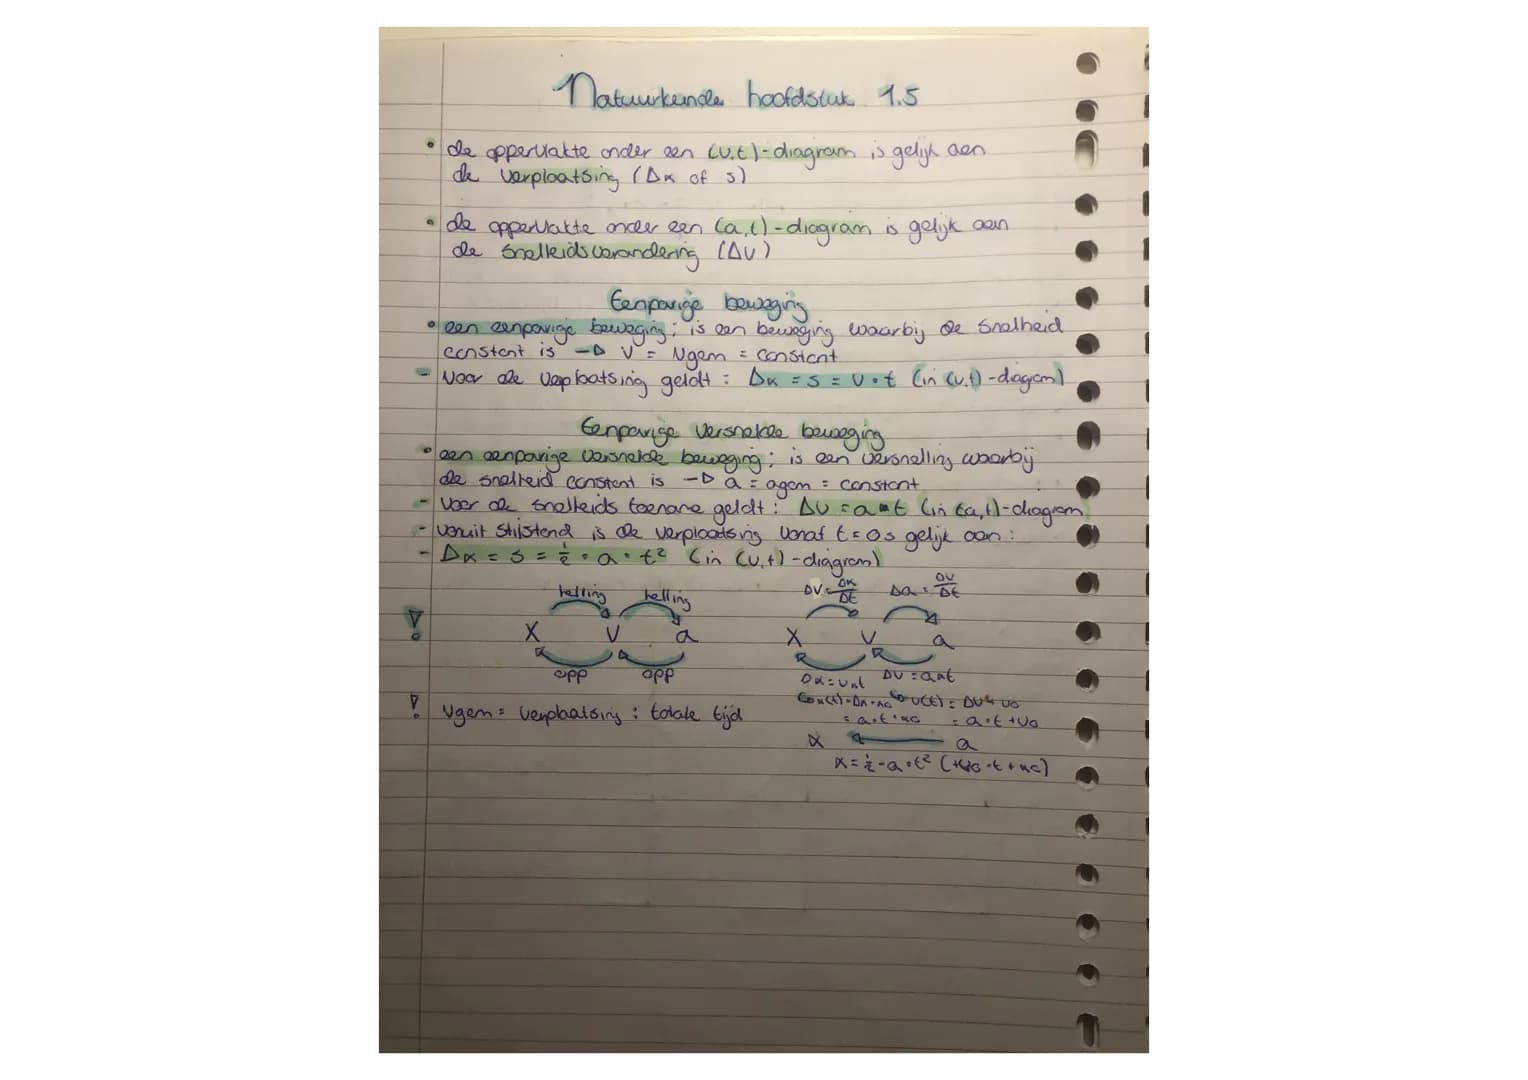 Natuurkunde hoofdstuk 1.5
• de oppervlakte onder een (v,t)-diagram is gelijk aan
de verplaatsing (Δx of s)
• de oppervlakte onder een (a,t)-diagram is gelijk aan
de snelheidsverandering (Δv)
Eenparige beweging
• een eenparige beweging: is een beweging waarbij de snelheid
constant is → v = vgem = constant
- Voor de veplaatsing geldt: Δx = s = v · t (in (v,t)-diagram)
Eenparige versnelde beweging
• een eenparige versnelde beweging: is een versnelling waarbij
de snelheid constant is → a = agem = constant
- Voor de snelheids toename geldt: Δv = a · t (in (a,t)-diagram
- vanuit stilstend is de verplaatsing vanaf t = 0s gelijk aan:
- Δx = s = ½ · a · t² (in (v,t)-diagram)
helling helling Δv = Δx/Δt Δa = Δv/Δt
! X V a X V a
opp opp Δx = v×t Δv = a×t
! Vgem = verplaatsing : totale tijd v(t) = Δv + v0
= a·t + v0
x a
x = ½ · a · t² (+v0 · t + x0)